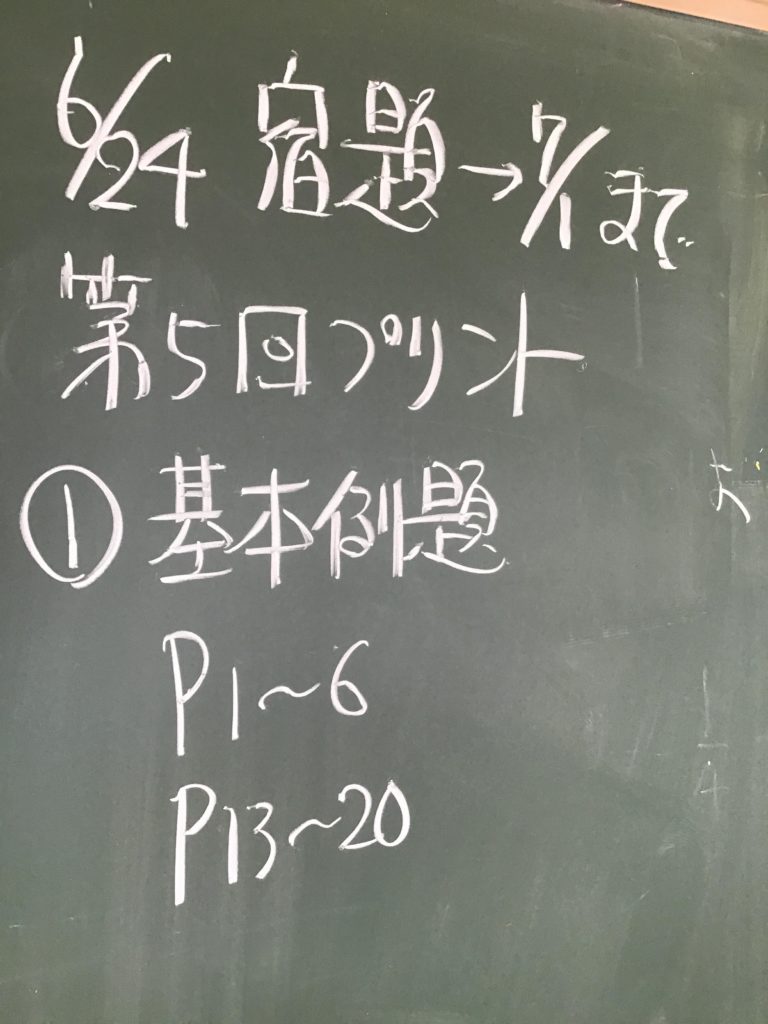 6/24 宿題→7/1まで
第5回プリント
① 基本例題
P1~6
P13~20